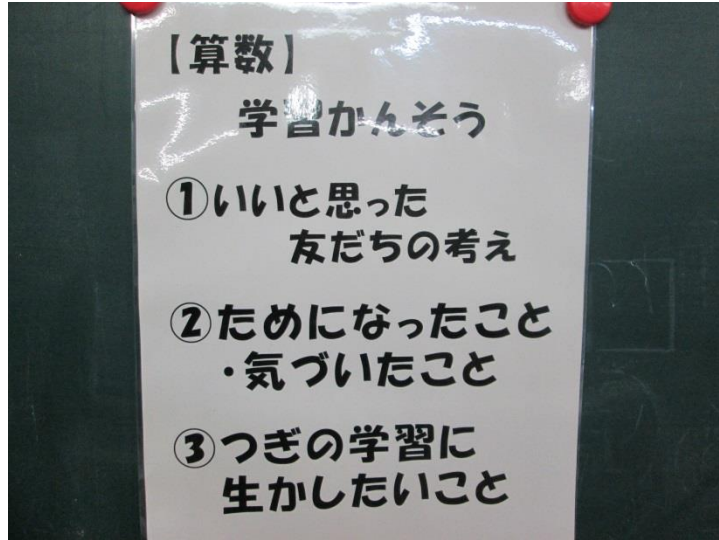 【算数】
学習かんそう
①いいと思った
友だちの考え
②ためになったこと
・気づいたこと
③つぎの学習に
生かしたいこと